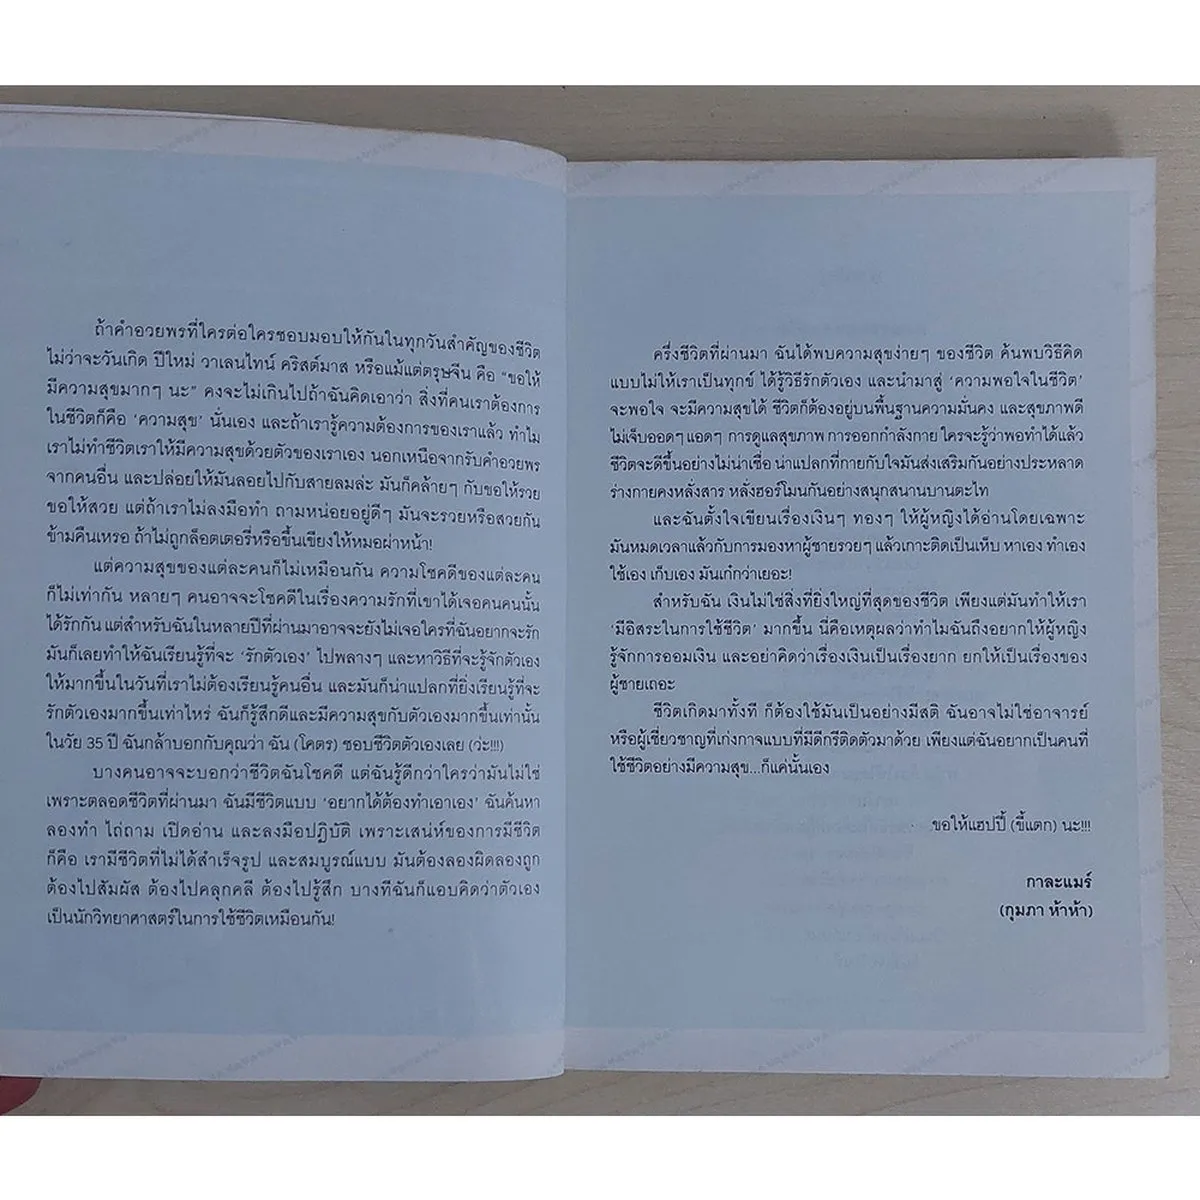 ถ้าคำอวยพรที่ใครต่อใครชอบมอบให้กันในทุกวันสำคัญของชีวิต
ไม่ว่าจะวันเกิด ปีใหม่ วาเลนไทน์ คริสต์มาส หรือแม้แต่ตรุษจีน คือ “ขอให้
มีความสุขมากๆ นะ” คงจะไม่เกินไปถ้าฉันคิดเอาว่า สิ่งที่คนเราต้องการ
ในชีวิตก็คือ ‘ความสุข’ นั่นเอง และถ้าเรารู้ความต้องการของเราแล้ว ทำไม
เราไม่ทำชีวิตเราให้มีความสุขด้วยตัวของเราเอง นอกเหนือจากรับคำอวยพร
จากคนอื่น และปล่อยให้มันลอยไปกับสายลมล่ะ มันก็คล้ายๆ กับขอให้รวย
ขอให้สวย แต่ถ้าเราไม่ลงมือทำ ถามหน่อยอยู่ดีๆ มันจะรวยหรือสวยกัน
ข้ามคืนเหรอ ถ้าไม่ถูกล็อตเตอรี่หรือขึ้นเขียงให้หมอผ่าหน้า!
แต่ความสุขของแต่ละคนก็ไม่เหมือนกัน ความโชคดีของแต่ละคน
ก็ไม่เท่ากัน หลายๆ คนอาจจะโชคดีในเรื่องความรักที่เขาได้เจอคนคนนั้น
ได้รักกัน แต่สำหรับฉันในหลายปีที่ผ่านมาอาจจะยังไม่เจอใครที่ฉันอยากจะรัก
มันก็เลยทำให้ฉันเรียนรู้ที่จะ ‘รักตัวเอง’ ไปพลางๆ และหาวิธีที่จะรู้จักตัวเอง
ให้มากขึ้นในวันที่เราไม่ต้องเรียนรู้คนอื่น และมันก็น่าแปลกที่ยิ่งเรียนรู้ที่จะ
รักตัวเองมากขึ้นเท่าไหร่ ฉันก็รู้สึกดีและมีความสุขกับตัวเองมากขึ้นเท่านั้น
ในวัย 35 ปี ฉันกล้าบอกกับคุณว่า ฉัน (โคตร) ชอบชีวิตตัวเองเลย (ว่ะ!!!)
บางคนอาจจะบอกว่าชีวิตฉันโชคดี แต่ฉันรู้ดีกว่าใครว่ามันไม่ใช่
เพราะตลอดชีวิตที่ผ่านมา ฉันมีชีวิตแบบ ‘อยากได้ต้องทำเอาเอง’ ฉันค้นหา
ลองทำ ไถ่ถาม เปิดอ่าน และลงมือปฏิบัติ เพราะเสน่ห์ของการมีชีวิต
ก็คือ เรามีชีวิตที่ไม่ได้สำเร็จรูป และสมบูรณ์แบบ มันต้องลองผิดลองถูก
ต้องไปสัมผัส ต้องไปคลุกคลี ต้องไปรู้สึก บางทีฉันก็แอบคิดว่าตัวเอง
เป็นนักวิทยาศาสตร์ในการใช้ชีวิตเหมือนกัน!
ครึ่งชีวิตที่ผ่านมา ฉันได้พบความสุขง่ายๆ ของชีวิต ค้นพบวิธีคิด
แบบไม่ให้เราเป็นทุกข์ ได้รู้วิธีรักตัวเอง และนำมาสู่ ‘ความพอใจในชีวิต’
จะพอใจ จะมีความสุขได้ ชีวิตก็ต้องอยู่บนพื้นฐานความมั่นคง และสุขภาพดี
ไม่เจ็บออดๆ แอดๆ การดูแลสุขภาพ การออกกำลังกาย ใครจะรู้ว่าพอทำได้แล้ว
ชีวิตจะดีขึ้นอย่างไม่น่าเชื่อ น่าแปลกที่กายกับใจมันส่งเสริมกันอย่างประหลาด
ร่างกายคงหลั่งสาร หลั่งฮอร์โมนกันอย่างสนุกสนานบานตะไท
และฉันตั้งใจเขียนเรื่องเงินๆ ทองๆ ให้ผู้หญิงได้อ่านโดยเฉพาะ
มันหมดเวลาแล้วกับการมองหาผู้ชายรวยๆ แล้วเกาะติดเป็นเห็บ หาเอง ทำเอง
ใช้เอง เก็บเอง มันเก๋กว่าเยอะ!
สำหรับฉัน เงินไม่ใช่สิ่งที่ยิ่งใหญ่ที่สุดของชีวิต เพียงแต่มันทำให้เรา
‘มีอิสระในการใช้ชีวิต’ มากขึ้น นี่คือเหตุผลว่าทำไมฉันถึงอยากให้ผู้หญิง
รู้จักการออมเงิน และอย่าคิดว่าเรื่องเงินเป็นเรื่องยาก ยกให้เป็นเรื่องของ
ผู้ชายเถอะ
ชีวิตเกิดมาทั้งที ก็ต้องใช้มันเป็นอย่างมีสติ ฉันอาจไม่ใช่อาจารย์
หรือผู้เชี่ยวชาญที่เก่งกาจแบบที่มีดีกรีติดตัวมาด้วย เพียงแต่ฉันอยากเป็นคนที่
ใช้ชีวิตอย่างมีความสุข...ก็แค่นั้นเอง
ขอให้แฮปปี้ (ขี้แตก) นะ!!!
กาละแมร์
(กุมภา ห้าห้า)